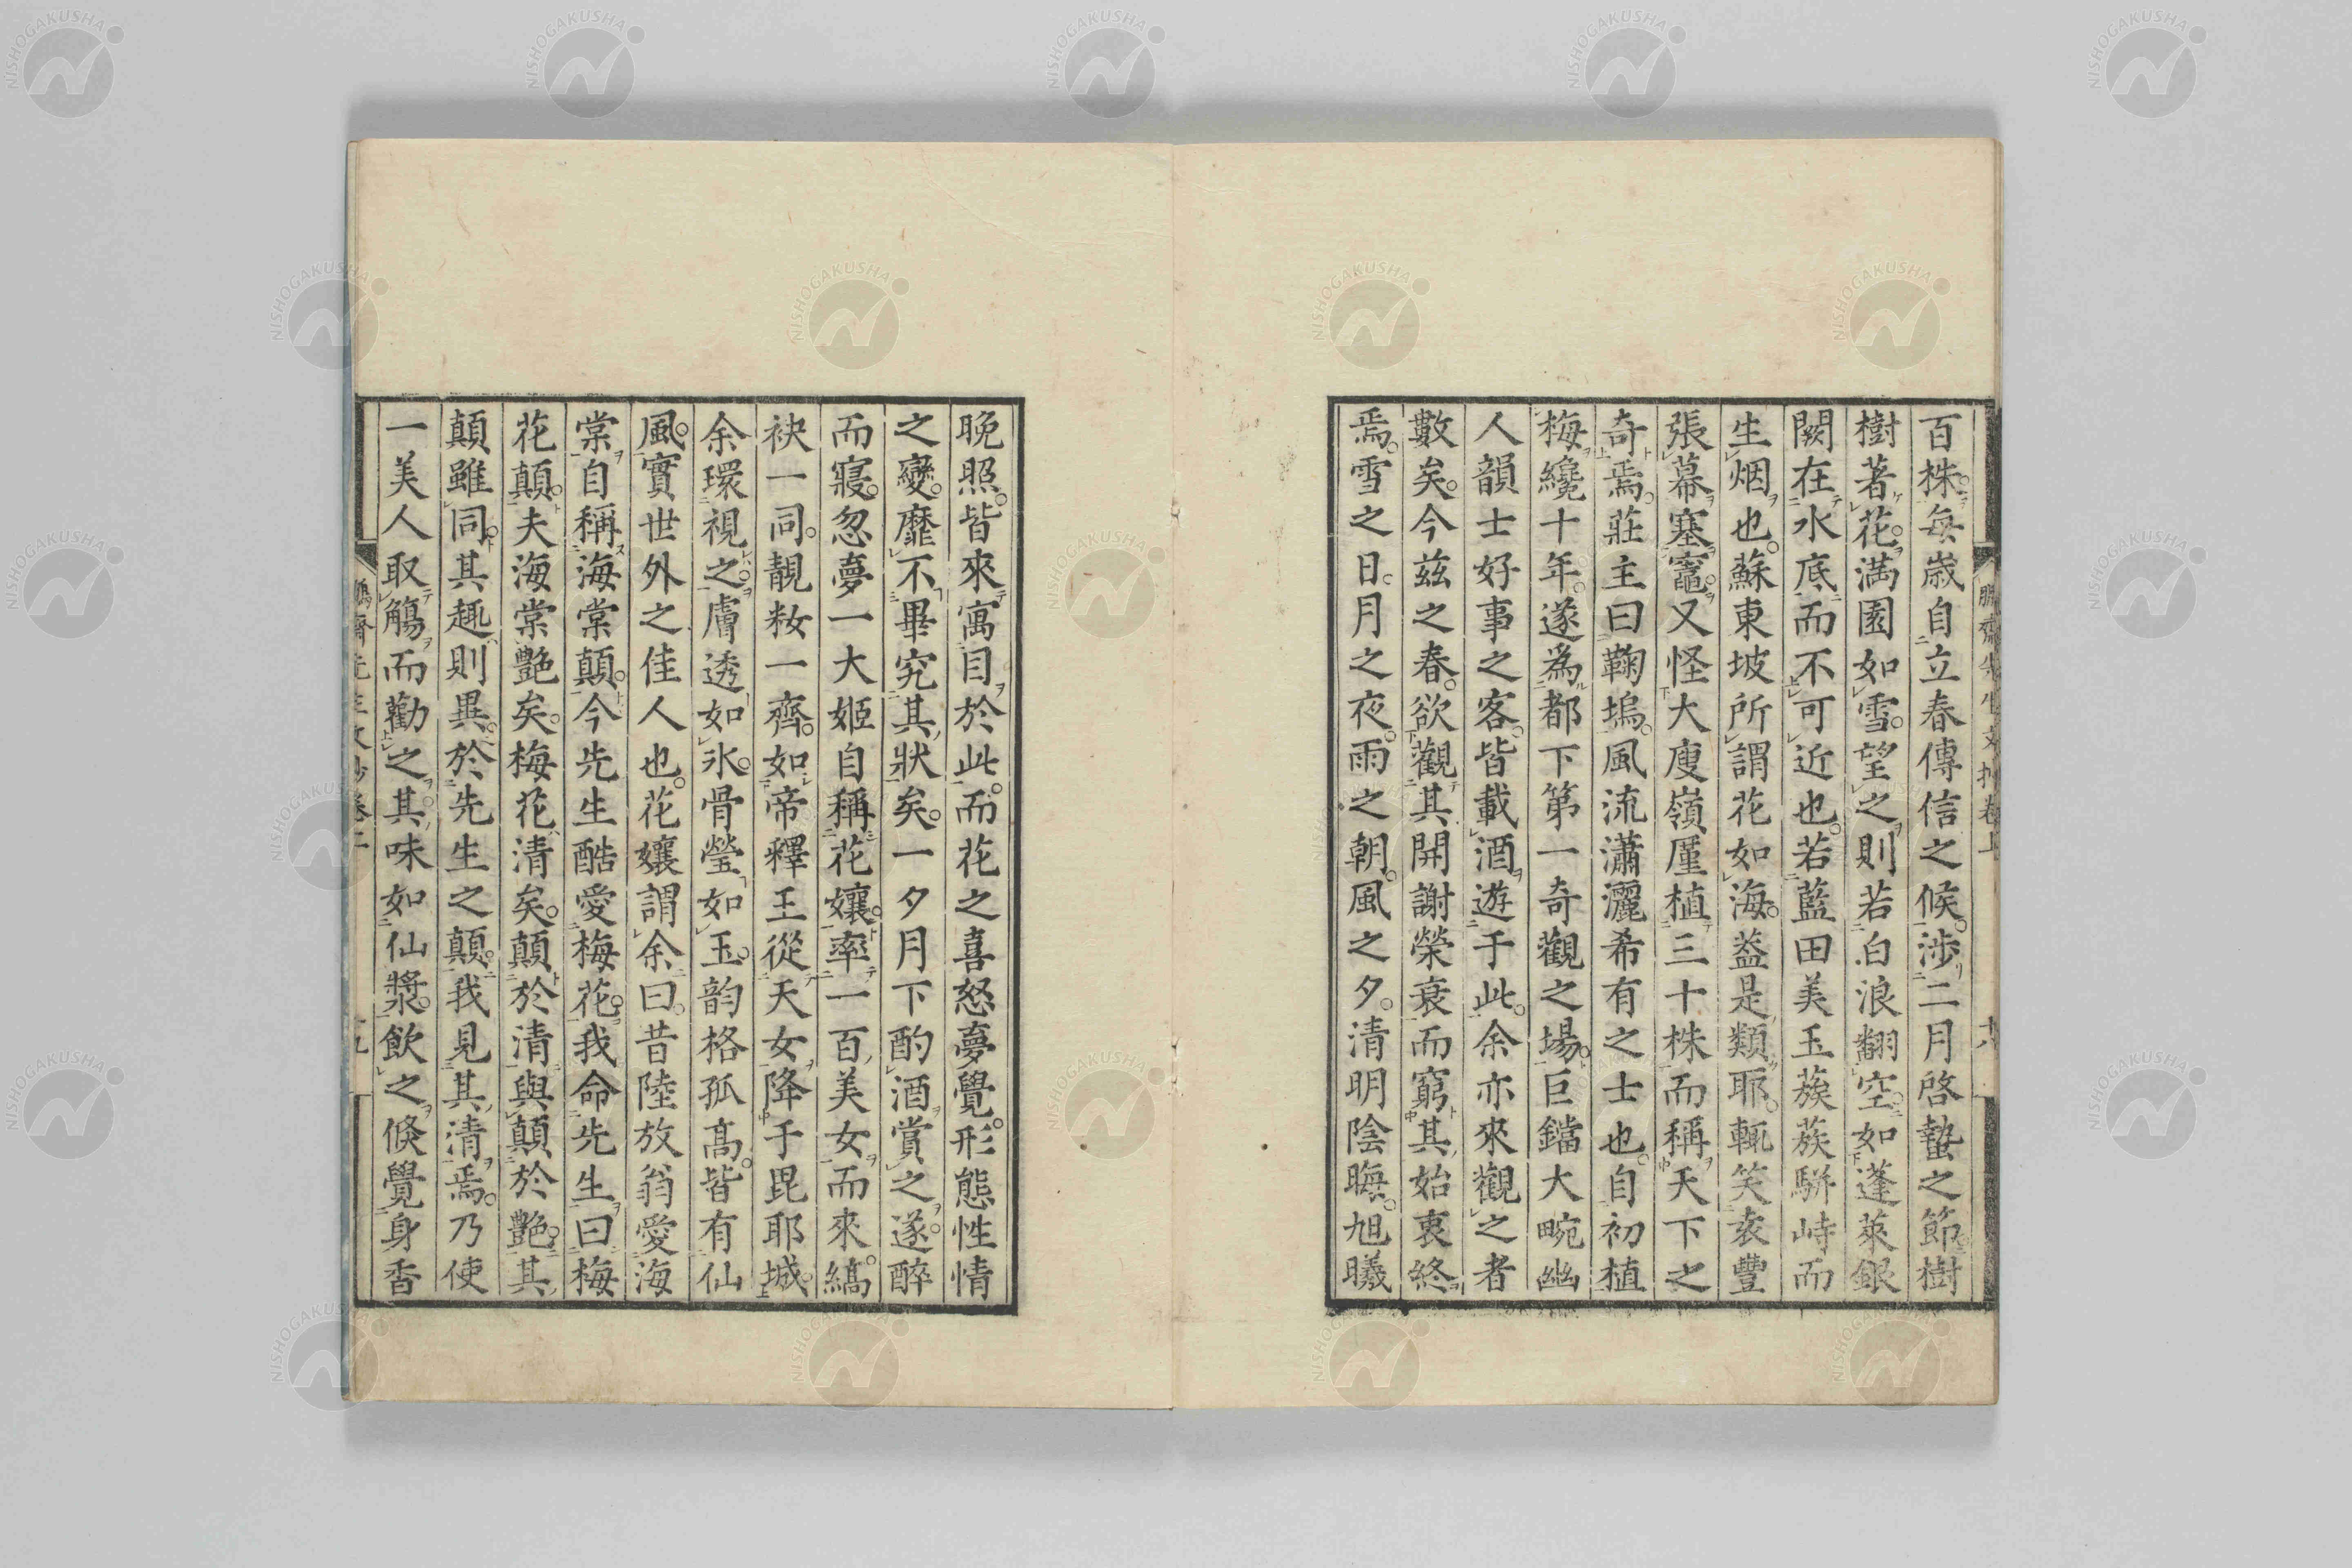 百株。每歲自立春傳信之候。涉二月啓蟄之節樹
樹著花。滿園如雪。望之則若白浪翻空。如蓬萊銀
闕在水底而不可近也。若藍田美玉蔟蔟駢峙而
生烟也。蘇東坡所謂花如海。蓋是類耶。輒笑袁豐
張幕塞竈。又怪大庾嶺厪植三十株而稱天下之
奇焉。莊主曰鞠塢。風流瀟灑希有之士也。自初植
梅纔十年。遂為都下第一奇觀之場。巨鐺大畹幽
人韻士好事之客。皆載酒遊于此。余亦來觀之者
數矣。今茲之春。欲觀其開謝榮衰而窮其始衷終
焉。雪之日。月之夜。雨之朝。風之夕。清明陰晦。旭曦
晚照。皆來寓目於此。而花之喜怒夢覺。形態性情
之變。靡不畢究其狀矣。一夕月下酌酒賞之。遂醉
而寢。忽夢一大姬自稱花孃。率一百美女而來。縞
袂一同。靚粧一齊。如帝釋王從天女降于毘耶城。
余環視之。膚透如氷。骨瑩如玉。韵格孤高。皆有仙
風。實世外之佳人也。花孃謂余曰。昔陸放翁愛海
棠。自稱海棠顛。今先生酷愛梅花。我命先生曰梅
花顛。夫海棠艷矣。梅花清矣。顛於清與顛於艷。其
顛雖同。其趣則異。於先生之顛。我見其清焉。乃使
一美人取觴而勸之。其味如仙漿。飲之倏覺身香
鵬齋先生文抄卷上
NISHOGAKUSHA